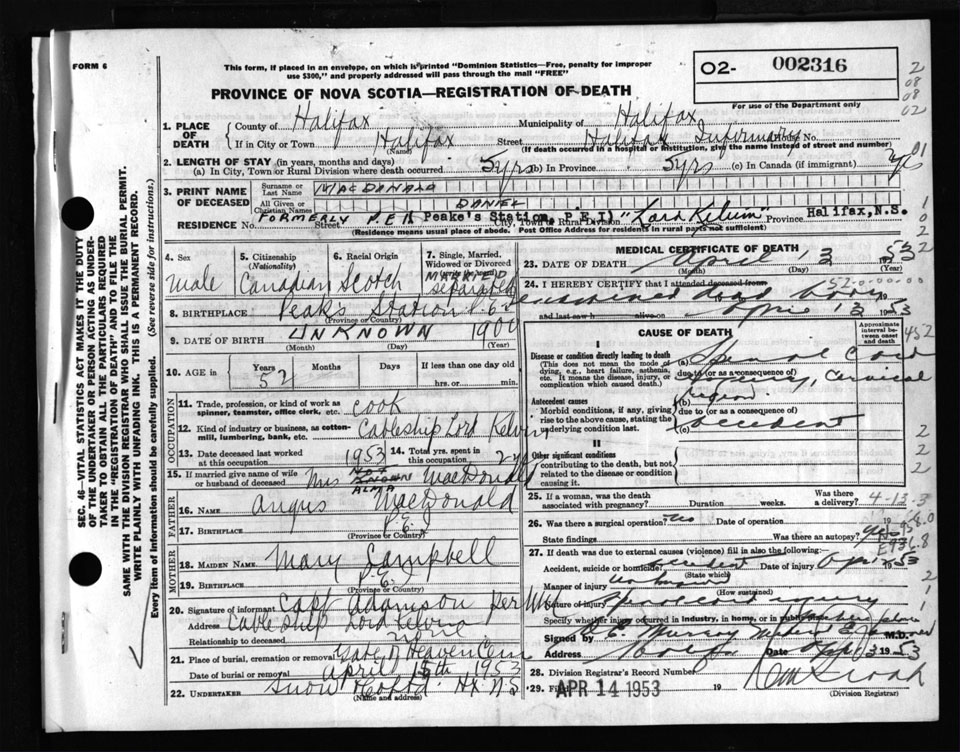 FORM 6
This form, if placed in an envelope, on which is printed "Dominion Statistics—Free, penalty for improper
use $300," and properly addressed will pass through the mail "FREE"
02- 002316
For use of the Department only
PROVINCE OF NOVA SCOTIA—REGISTRATION OF DEATH
2
08
08
02
1. PLACE OF DEATH
County of Halifax Municipality of Halifax
If in City or Town Halifax Street Halifax Infirmary House No.
(Name) (If death occurred in a hospital or institution, give the name instead of street and number)
2. LENGTH OF STAY (in years, months and days)
(a) In City, Town or Rural Division where death occurred 5 yrs (b) In Province 5 yrs (c) In Canada (if immigrant)
01
3. PRINT NAME OF DECEASED
Surname or Last Name MACDONALD
All Given or Christian Names DANIEL
FORMERLY P.E.I. Peake's Station, P.E.I) "Lord Kelvin" Halifax, N.S.
RESIDENCE No. Street City, Town or Rural Division Province
(Residence means usual place of abode. Post Office Address for residents in rural parts not sufficient)
4. Sex
male
5. Citizenship (Nationality)
Canadian
6. Racial Origin
Scotch
7. Single, Married, Widowed or Divorced
MARRIED
separated
8. BIRTHPLACE Peak's Station P.E.I.
(Province or Country)
9. DATE OF BIRTH UNKNOWN 1900
(Month) (Day) (Year)
10. AGE in Years Months Days If less than one day old
52 hrs. or min.
OCCUPATION
11. Trade, profession, or kind of work as spinner, teamster, office clerk, etc. cook
12. Kind of industry or business, as cotton-mill, lumbering, bank, etc. Cableship Lord Kelvin
13. Date deceased last worked at this occupation 1953
14. Total yrs. spent in this occupation 2 yrs
15. If married give name of wife or husband of deceased Mrs NOT KNOWN ALMA MacDonald
FATHER
16. NAME Angus MacDonald
17. BIRTHPLACE P.E.I.
(Province or Country)
MOTHER
18. MAIDEN NAME Mary Campbell
19. BIRTHPLACE P.E.I.
(Province or Country)
20. Signature of informant Capt Adamson Per
Address Cableship Lord Kelvin
Relationship to deceased none
21. Place of burial, cremation or removal Gate of Heaven Cem
Date of burial or removal April 15th 1953
22. UNDERTAKER Snow Hx. N.S.
MEDICAL CERTIFICATE OF DEATH
23. DATE OF DEATH April 13 1953
(Month) (Day) (Year)
24. I HEREBY CERTIFY that I attended deceased from
examined dead body
and last saw h alive on April 13 1953
CAUSE OF DEATH
Approximate interval between onset and death
I
Disease or condition directly leading to death
(This does not mean the mode of dying, e.g., heart failure, asthenia, etc. It means the disease, injury, or complication which caused death.)
(a) Spinal cord
due to (or as a consequence of)
injury, cervical
region.
Antecedent causes
Morbid conditions, if any, giving rise to the above cause, stating the underlying condition last.
(b)
due to (or as a consequence of)
(c) accident
II
Other significant conditions
contributing to the death, but not related to the disease or condition causing it.
25. If a woman, was the death associated with pregnancy? Duration weeks. Was there a delivery?
26. Was there a surgical operation? no Date of operation 19
State findings Was there an autopsy? yes
27. If death was due to external causes (violence) fill in also the following:
Accident, suicide or homicide? accident Date of injury April 1953
(State which)
Manner of injury unknown
(How sustained)
Nature of injury Spinal cord injury
Specify whether injury occurred in industry, in home, or in public place
Signed by Murray M.D.
Address Halifax April 1953
28. Division Registrar's Record Number
29. Filed APR 14 1953 19
(Division Registrar)
SEC. 46—VITAL STATISTICS ACT MAKES IT THE DUTY
OF THE UNDERTAKER OR PERSON ACTING AS UNDER-
TAKER TO OBTAIN ALL THE PARTICULARS REQUIRED
IN THE "REGISTRATION OF DEATH" AND TO FILE THE
SAME WITH THE DIVISION REGISTRAR WHO SHALL ISSUE THE BURIAL PERMIT.
WRITE PLAINLY WITH UNFADING INK. THIS IS A PERMANENT RECORD.
Every item of information should be carefully supplied. (See reverse side for instructions.)